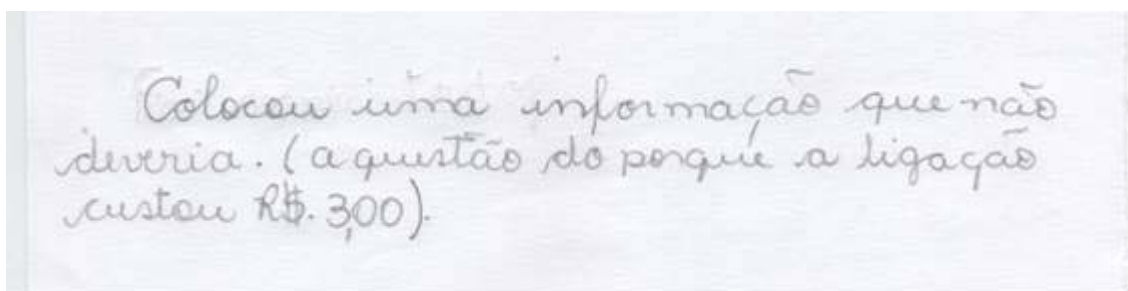 Colocou uma informação que não
deveria. (a questão do porque a ligação
custou R$. 3,00).